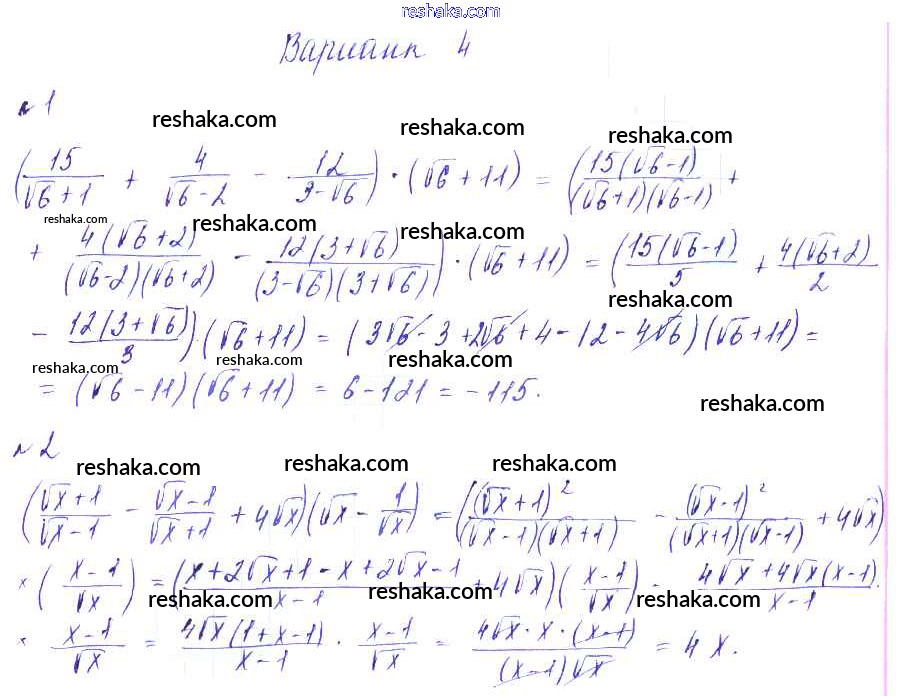 reshaka.com
Вариант 4
№ 1
reshaka.com reshaka.com reshaka.com
(15/(√6+1) + 4/(√6-2) - 12/(3-√6)) · (√6+11) = (15(√6-1)/((√6+1)(√6-1)) +
reshaka.com reshaka.com reshaka.com
+ 4(√6+2)/((√6-2)(√6+2)) - 12(3+√6)/((3-√6)(3+√6))) · (√6+11) = (15(√6-1)/5 + 4(√6+2)/2
reshaka.com
- 12(3+√6)/3)(√6+11) = (3√6-3+2√6+4-12-4√6)(√6+11) =
reshaka.com reshaka.com reshaka.com
= (√6-11)(√6+11) = 6-121 = -115.
reshaka.com
№ 2
reshaka.com reshaka.com reshaka.com
((√x+1)/(√x-1) - (√x-1)/(√x+1) + 4√x)(√x - 1/√x) = ((√x+1)²/((√x-1)(√x+1)) - (√x-1)²/((√x+1)(√x-1)) + 4√x)
× ((x-1)/√x) = ((x+2√x+1-x+2√x-1)/(x-1) + 4√x)((x-1)/√x) = (4√x+4√x(x-1))/(x-1) ·
reshaka.com reshaka.com reshaka.com
× (x-1)/√x = 4√x(1+x-1)/(x-1) · (x-1)/√x = 4√x·x·(x-1)/((x-1)√x) = 4x.